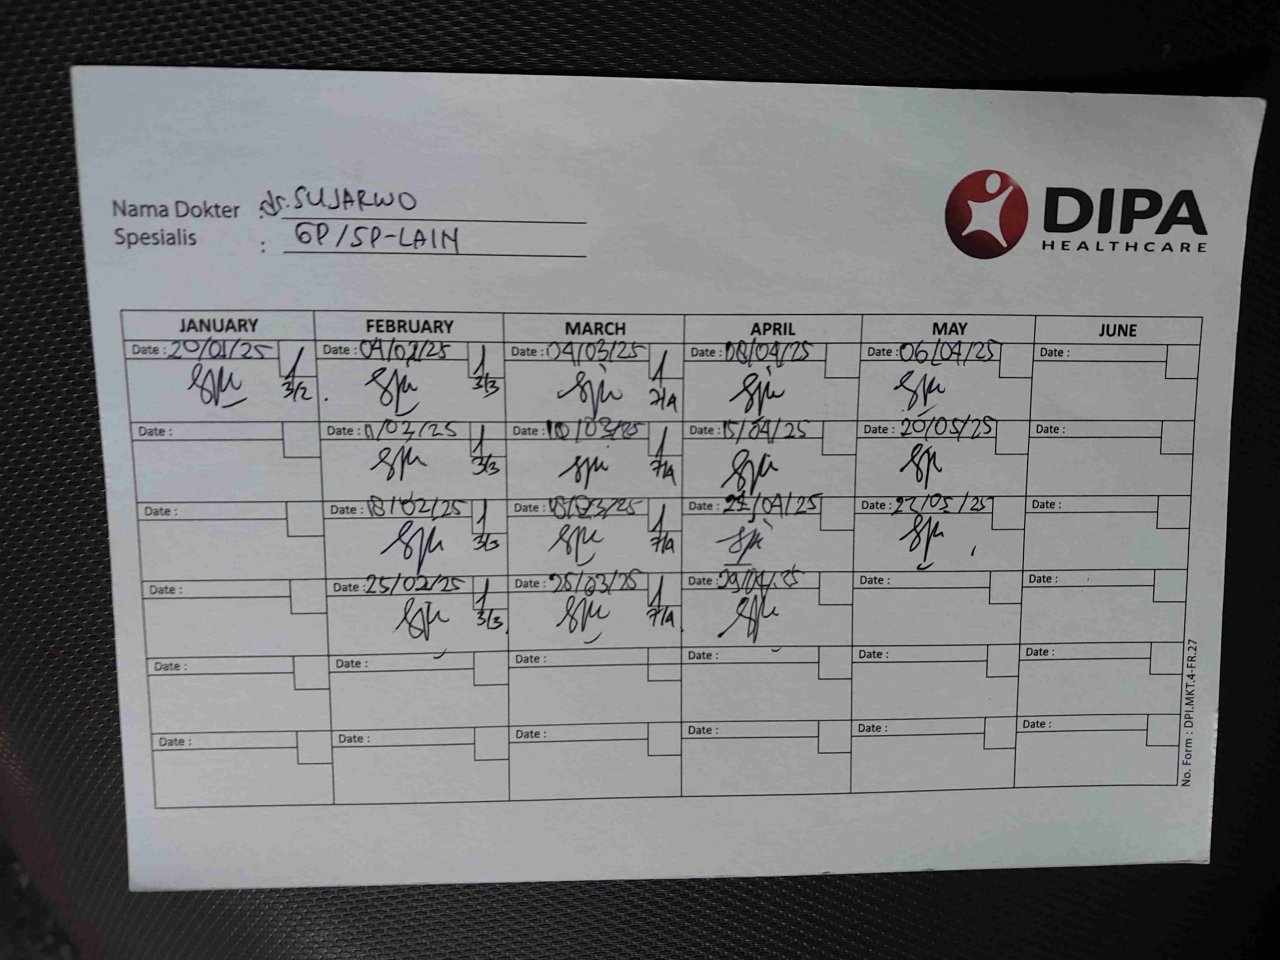 Nama Dokter : dr. SUJARWO
Spesialis : GP/SP-LAIN
DIPA
HEALTHCARE
JANUARY FEBRUARY MARCH APRIL MAY JUNE
Date : 20/01/25 Date : 04/02/25 Date : 04/03/25 Date : 08/04/25 Date : 06/04/25 Date :
3/2 3/3 7/4
Date : Date : 11/02/25 Date : 10/03/25 Date : 15/04/25 Date : 20/05/25 Date :
3/3 7/4
Date : Date : 18/02/25 Date : 18/03/25 Date : 22/04/25 Date : 27/05/25 Date :
3/3 7/4
Date : Date : 25/02/25 Date : 25/03/25 Date : 29/04/25 Date : Date :
3/3 7/4
Date : Date : Date : Date : Date : Date :
Date : Date : Date : Date : Date : Date :
No. Form : DPI.MKT.4-FR.27